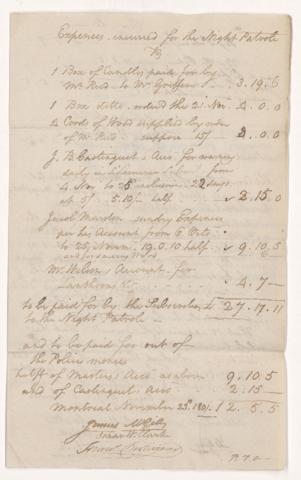 Expences incurred for the Night Patrole
Viz
1 Box of Candles paid for by
Mr Reid to Mr Griffin 3.19.6
1 Box ditto, ordered the 21 Nov 4.0.0
4 Cords of Wood supplied by order
of Mr Reid suppose 15/ 3.0.0
J. B. Castinguet's Acco. for
daily from
4 Nov. to 25 inclusive 22 days
at 5/ 5.10/ half 2.15.0
Jacob Marston sundry Expences
per his Account from 6 Octo
to 25 Novem. 19.0.10 half 9.10.5
and for sawing Wood
Mr. Wilson's Account for
Lanthorns &c 4.7
to be paid for by the Subscribers £ 27.17.11
to the Night Patrole
and to be paid for out of
the Police monies
half of Marston's Acco as above 9.10.5
and of Castinguet's Acco 2.15
Montreal November 25th 1801. 12.5.5
James McGill
Isaac W. Clarke
P.T.O.